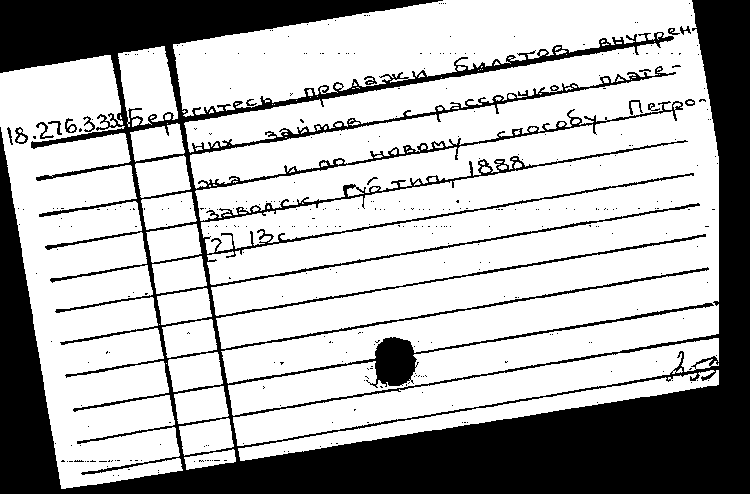 18.276.3.339 Берегитесь продажи билетов внутрен-
них займов с рассрочкою плате-
жа и по новому способу. Петро-
заводск, Губ. тип., 1888.
[2], 13 с.
253